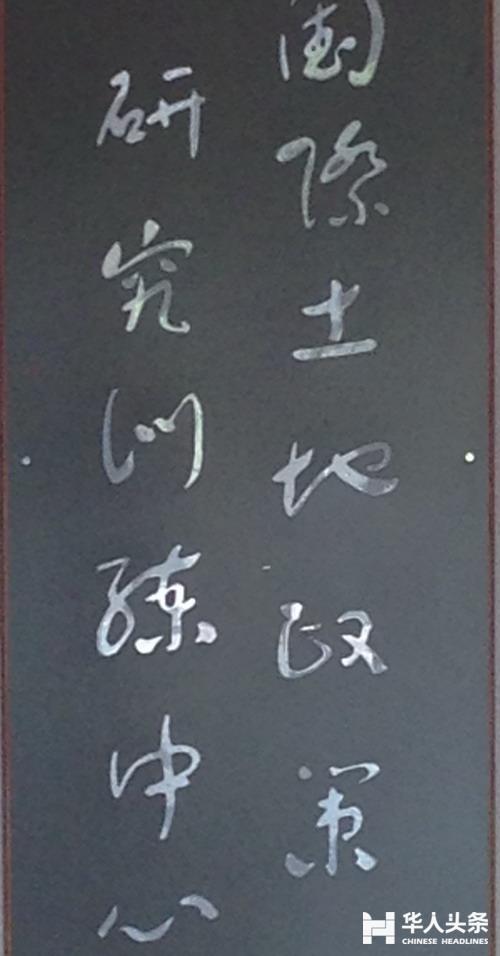 國際土地政策
研究训練中心
华人头条
CHINESE HEADLINES